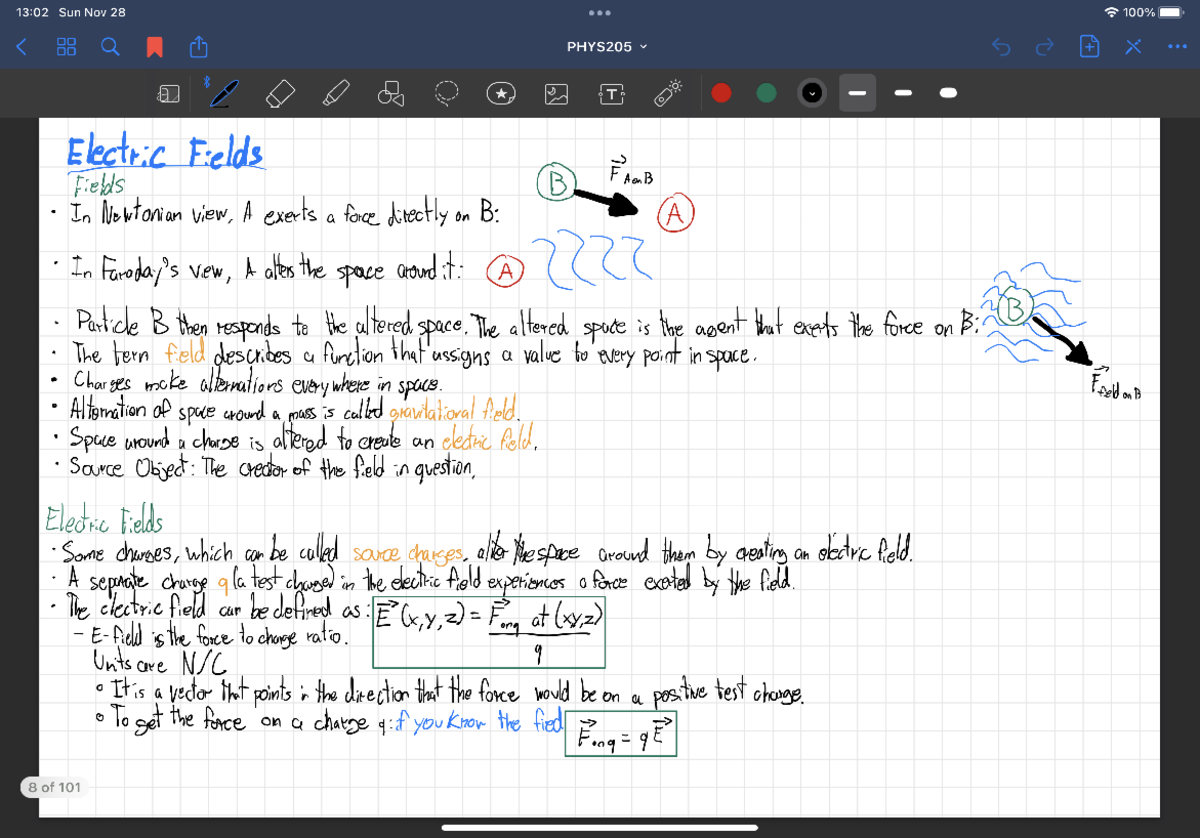 13:02 Sun Nov 28
100%
PHYS205
Electric Fields
Fields
F A on B
B
A
· In Newtonian view, A exerts a force directly on B:
· In Faraday's view, A alters the space around it: A
· Particle B then responds to the altered space. The altered space is the agent that exerts the force on B:
B
· The term field describes a function that assigns a value to every point in space.
· Charges make alternations everywhere in space.
F field on B
· Alternation of space around a mass is called gravitational field.
· Space around a charge is altered to create an electric field.
· Source Object: The creator of the field in question.
Electric Fields
· Some charges, which can be called source charges, alter the space around them by creating an electric field.
· A separate charge q (a test charge) in the electric field experiences a force exerted by the field.
· The electric field can be defined as: E(x,y,z) = F on q at (x,y,z) / q
- E-field is the force to charge ratio.
Units are N/C
◦ It is a vector that points in the direction that the force would be on a positive test charge.
◦ To get the force on a charge q: if you know the field F on q = qE
8 of 101